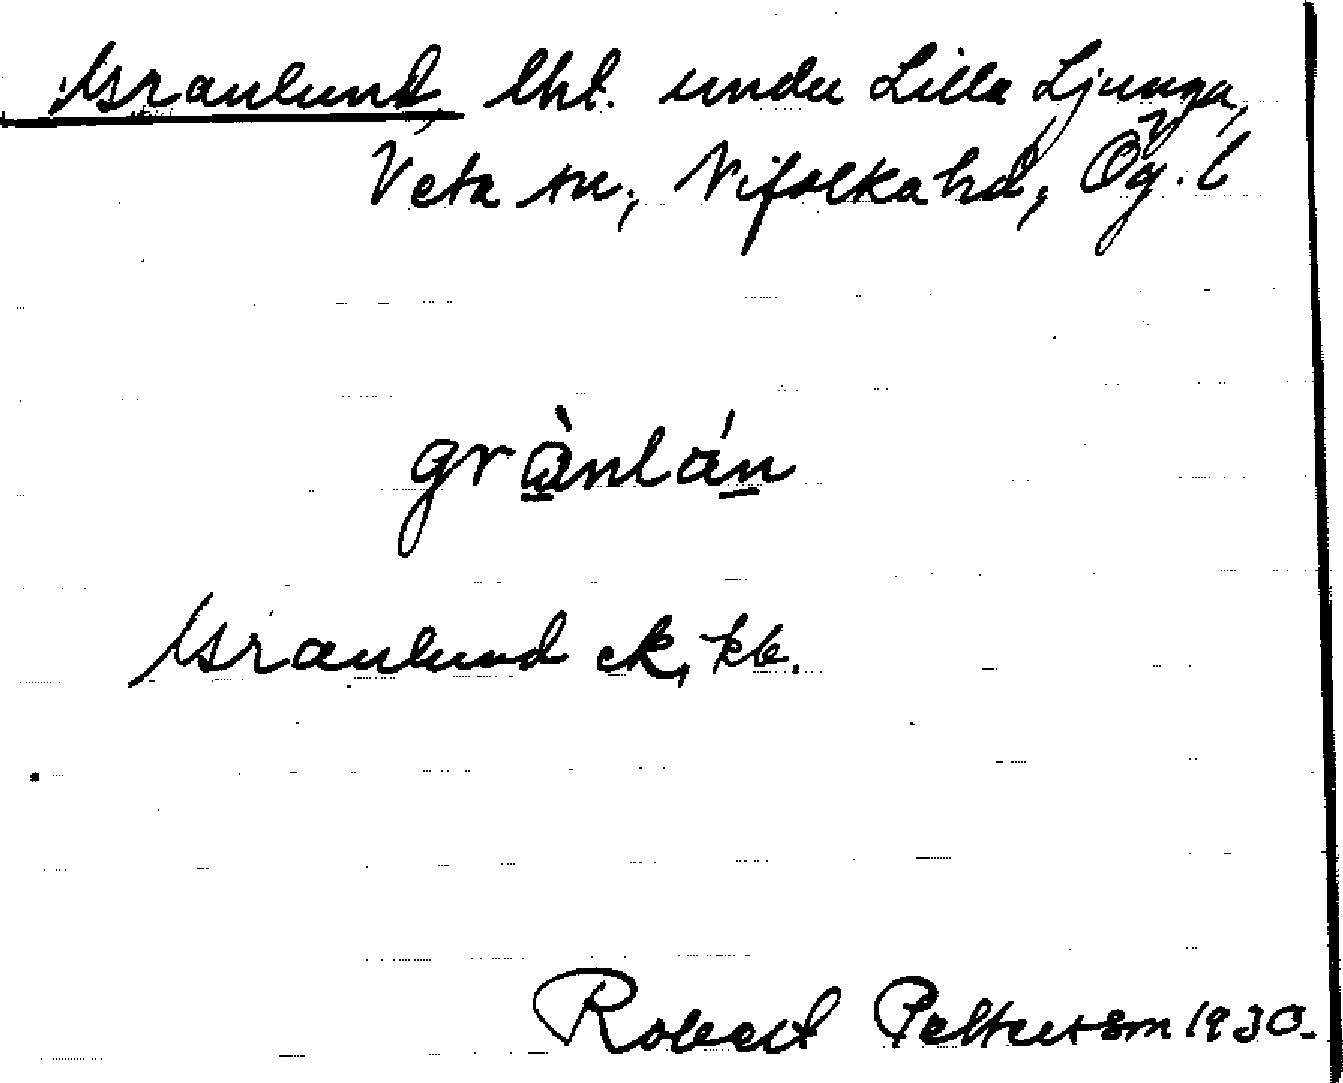 Granlund, lht. under Lilla Ljunga,
Veta sn, Vifolka hd, Ög. l
grànlán
Granlund ek, kb.
Robert Pettersson 1930.